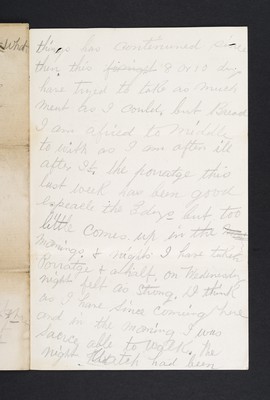 what
things has continued since
then this 8 or 10 day
have tryed to take as much
ment as I could, but Bread
I am afried to middle
to with as I am after ill
after it. the porradge this
last week has been good
espeacle the Edge but too
little comes up in the
mornings & night I have taken
Porradge & a half. on Wednesday
night felt as strong. I think
as I have since coming here
and in the morning I was
sacrcy able to walk. the
night Watch had been